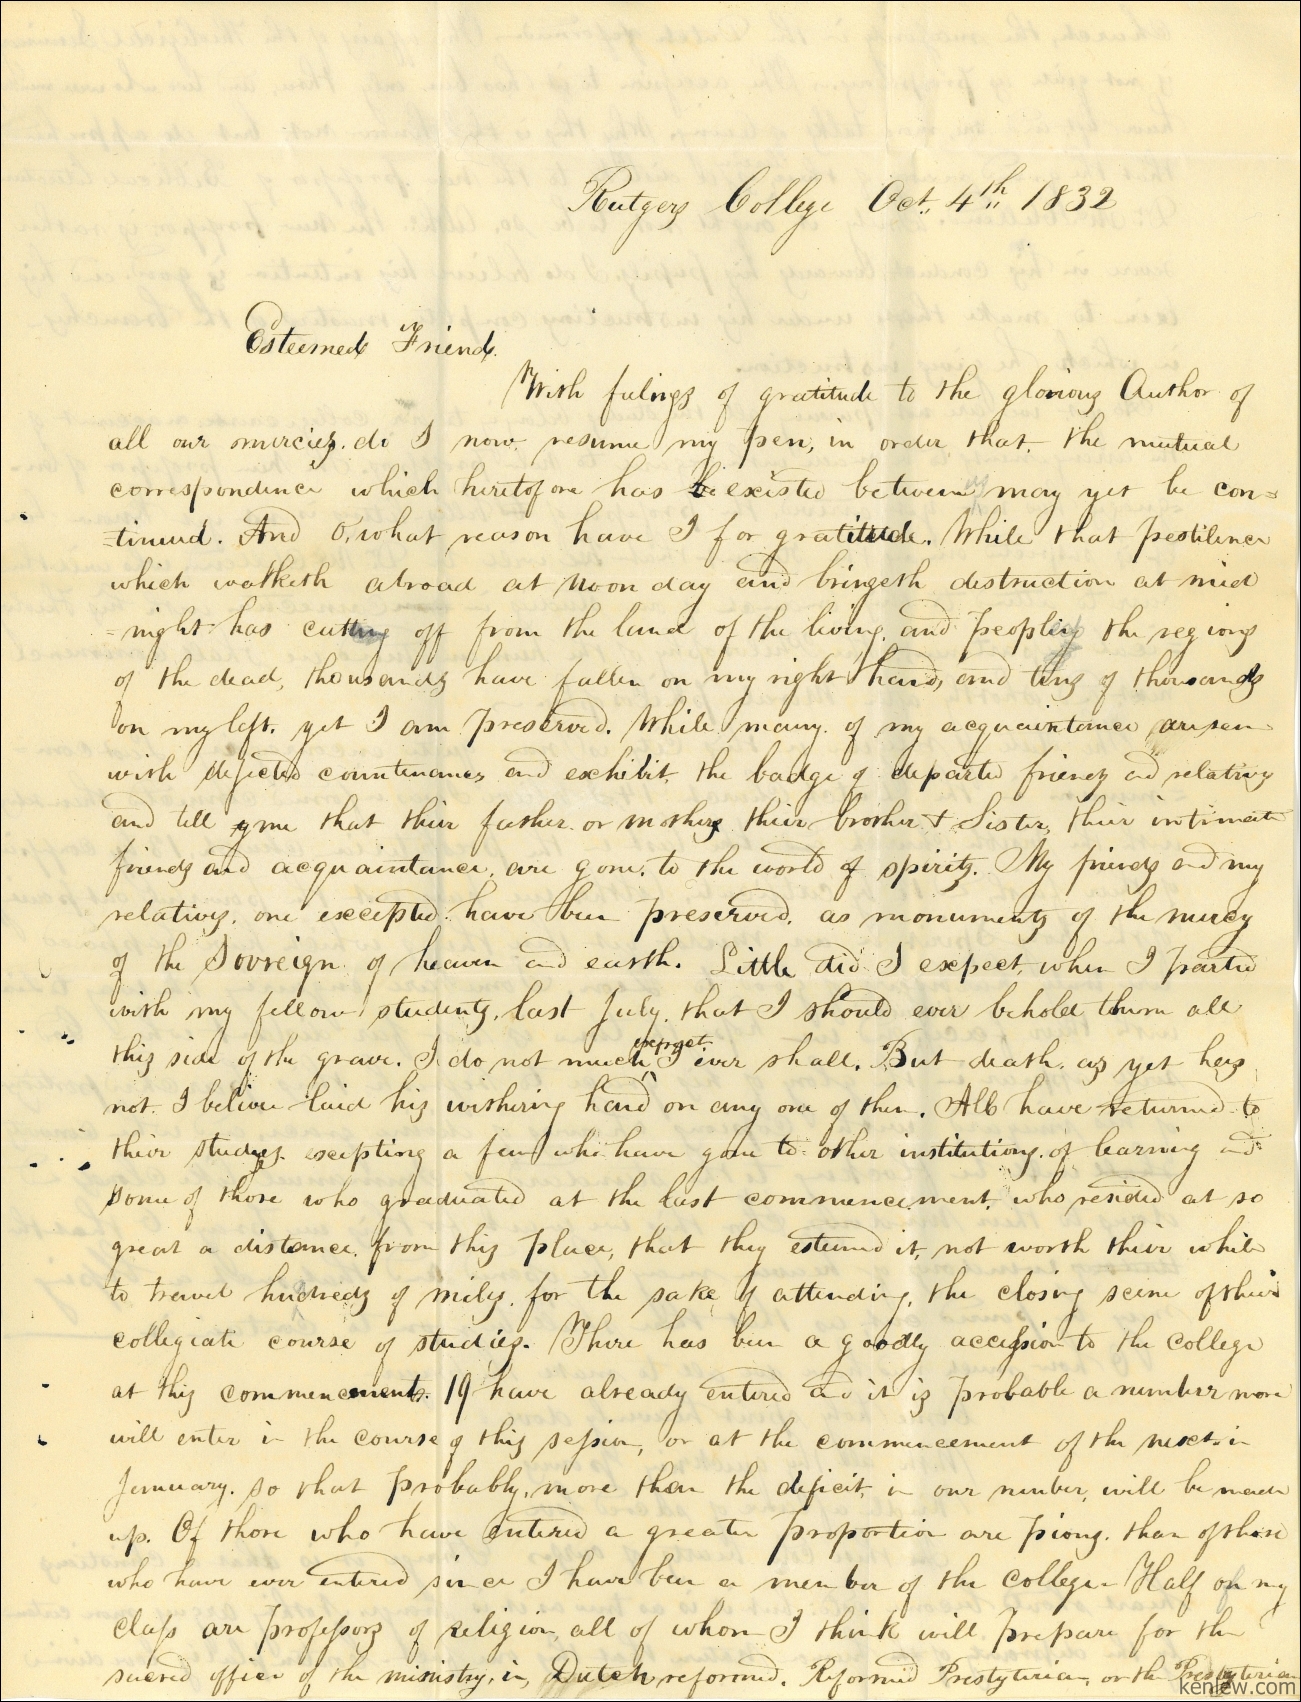 Rutgers College Oct. 4th 1832
Esteemed Friend.
With felings of gratitude to the glorious Author of
all our mercies. do I now resume my pen, in order that. the mutual
correspondence which heretofore has existed between may yet be con=
=tinued. And O, what reason have I for gratitude. While that pestilence
which walketh abroad at noon day and bringeth distruction at mid
=night has cutting off from the land of the living, and peopling the regions
of the dead, thousands have fallen on my right hand, and tens of thousands
on my left. yet I am preserved. While many of my acquaintance are seen
with dejected countenances and exhibit the badge of departed friends and relatives
and tell me that their father or mothers their brother & Sister, their intimate
friends and acquaintance, are gone. to the world of spirits. My friends and my
relatives, one excepted have been preserved. as monuments of the mercy
of the Sovreign of heaven and earth. Little did I expect, when I parted
with my fellow students, last July, that I should ever behold them all
this side of the grave. I do not much expect I ever shall. But death, as yet has
not. I believe laid his withering hand on any one of them. All have returned to
their studies excepting a few who have gone to other institutions of learning and
some of those who graduated at the last commencement. who resided at so
great a distance from this place, that they esteemed it, not worth their while
to travel hundreds of miles. for the sake of attending, the closing scene of their
collegiate course of studies. There has been a goodly accession to the college
at this commencement. 19 have already entered and it is probable a number more
will enter in the course of this session, or at the commencement of the next in
January. so that probably, more than the deficit, in our number, will be made
up. Of those who have entered a greater proportion are pious. than of those
who have ever entered since I have been a member of the college. Half of my
class are professors of religion, all of whom I think will prepare for the
sacred office of the ministry, in Dutch reformed. Reformed Presbyterian, or the Presbyterian
kenlew.com